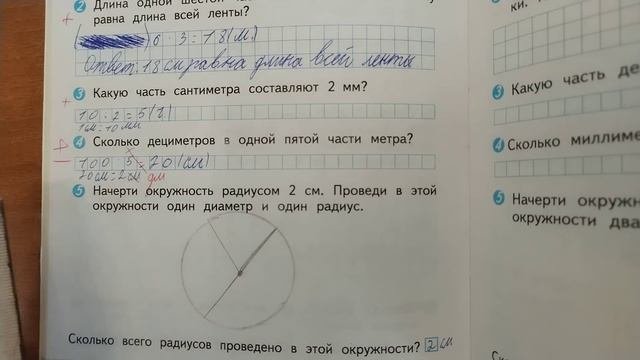 2 Длина одной шестой час
равна длина всей ленты?
6 · 3 = 18 (м.)
Ответ: 18 см равна длина всей ленты
3 Какую часть сантиметра составляют 2 мм?
10 : 2 = 5 (
1 см = 10 мм
4 Сколько дециметров в одной пятой части метра?
100 5 = 20 (см)
20 см = 2 см дм
5 Начерти окружность радиусом 2 см. Проведи в этой
окружности один диаметр и один радиус.
Сколько всего радиусов проведено в этой окружности? 2 см
ки.
3 Какую часть де
4 Сколько миллиме
5 Начерти окружн
окружности два